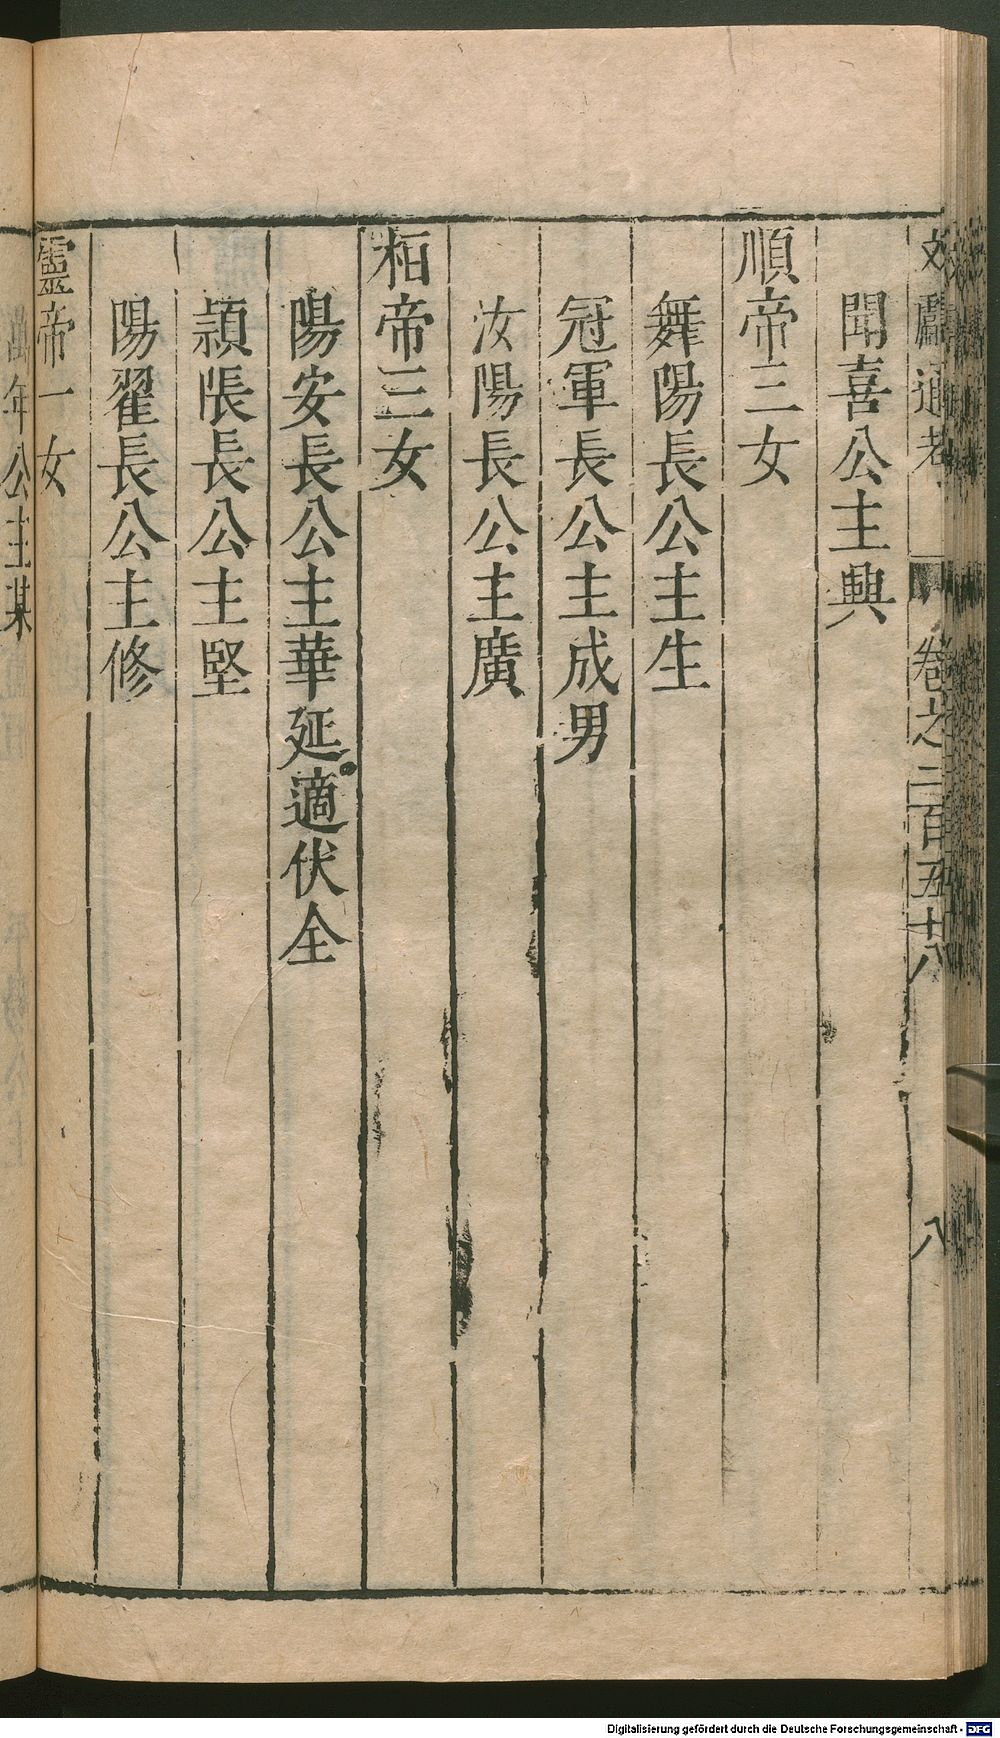 文獻通考 卷之二百五十八 八
聞喜公主興
順帝三女
舞陽長公主生
冠軍長公主成男
汝陽長公主廣
桓帝三女
陽安長公主華延適伏全
潁陽長公主堅
陽翟長公主修
靈帝一女
萬年公主某
Digitalisierung gefördert durch die Deutsche Forschungsgemeinschaft - DFG